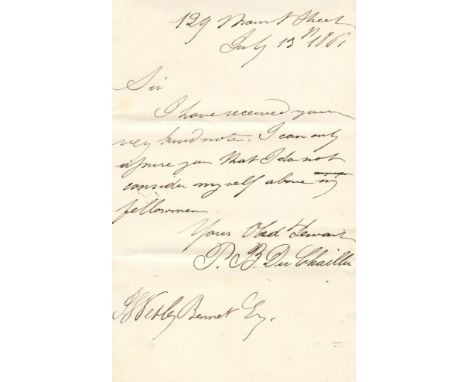 129 Mount Street
July 13th 1861
Sir
I have received your
very kind note. I can only
assure you that I do not
consider myself above my
fellowmen.
Yours Obed Servant
P. B. Du Chaillu
Wesley Bennet Esq.